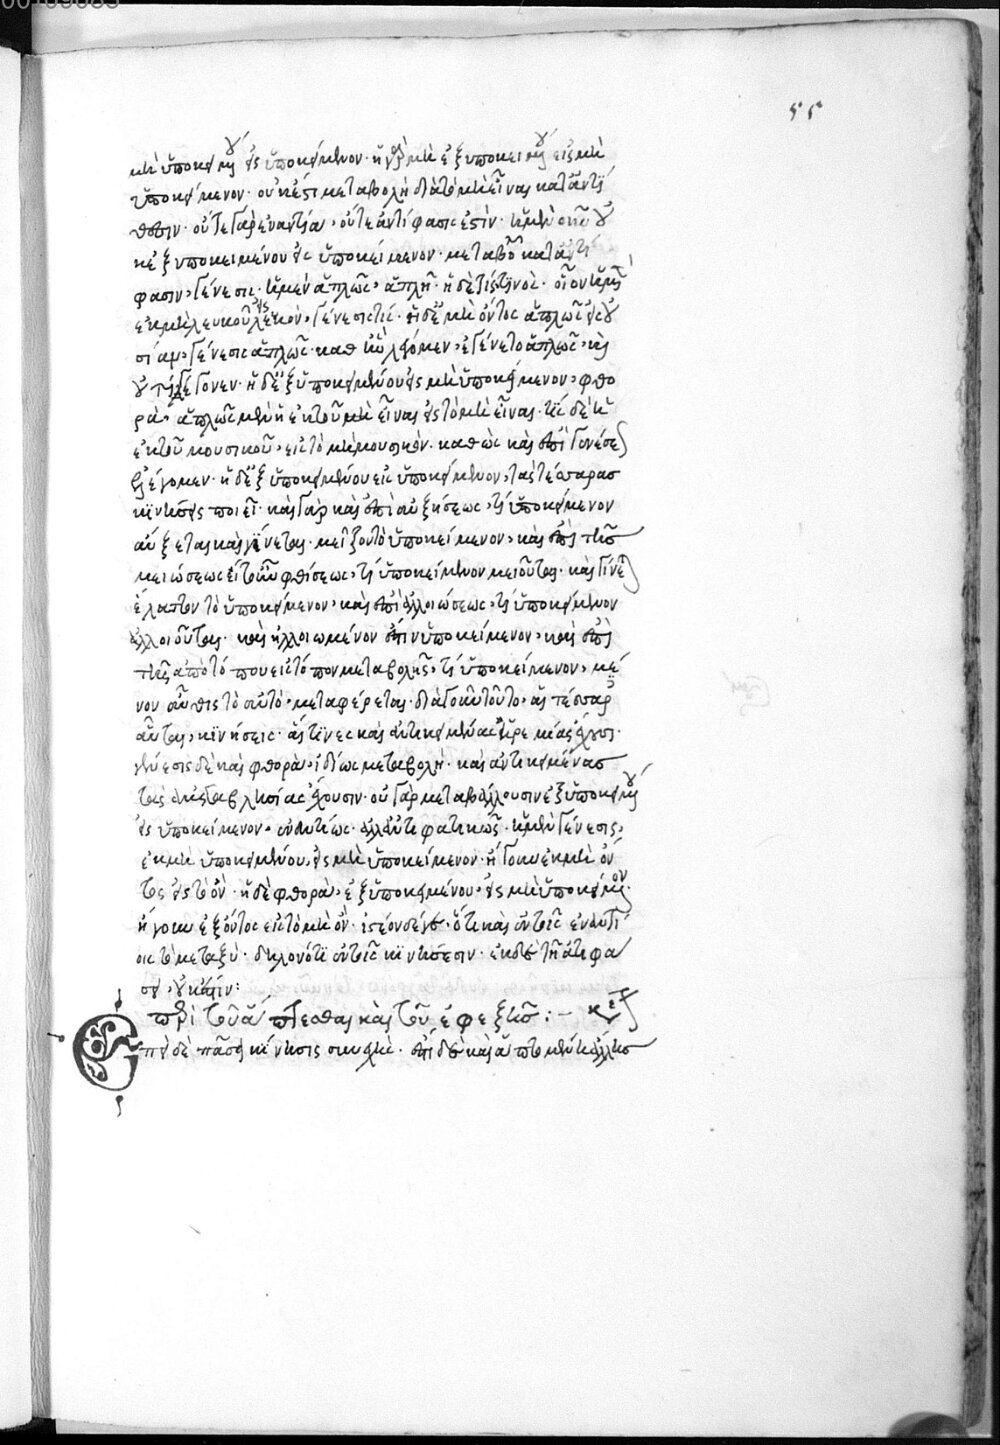 55
μὴ ὑποκειμένου εἰς ὑποκείμενον· ἡ γὰρ μὴ ἐξ ὑποκειμένου εἰς μὴ
ὑποκείμενον· οὐκ ἔστι μεταβολὴ διὰ τὸ μὴ εἶναι κατ' ἀντί
θεσιν· οὔτε γὰρ ἐναντία, οὔτε ἀντίφασίς ἐστιν· ἡ μὲν οὖν οὐ
κ ἐξ ὑποκειμένου εἰς ὑποκείμενον· μεταβολὴ κατ' ἀντί
φασιν, γένεσις· ἡ μὲν ἁπλῶς, ἁπλῆ· ἡ δὲ τὶς τινός· οἷον ἡ μὲν
ἐκ μὴ λευκοῦ εἰς λευκὸν, γένεσίς τις· ἡ δὲ ἐκ μὴ ὄντος ἁπλῶς εἰς οὐ
σίαν, γένεσις ἁπλῶς· καθ' ἣν λέγομεν, ἐγένετο ἁπλῶς, καὶ
οὐ τὶ γέγονεν· ἡ δὲ ἐξ ὑποκειμένου εἰς μὴ ὑποκείμενον, φθο
ρά· ἁπλῶς μὲν ἡ ἐκ τοῦ μὴ εἶναι εἰς τὸ μὴ εἶναι· τὶς δὲ ἡ
ἐκ τοῦ μουσικοῦ, εἰς τὸ μὴ μουσικόν· καθὼς καὶ ἐπὶ γενέσεως
ἐλέγομεν· ἡ δὲ ἐξ ὑποκειμένου εἰς ὑποκείμενον, τὰς τέσσαρας
κινήσεις ποιεῖ· καὶ γὰρ καὶ ἐπὶ αὐξήσεως, τὶ ὑποκείμενον
αὔξεται καὶ γίνεται μεῖζον τὸ ὑποκείμενον, καὶ ἐπὶ τῆς
μειώσεως εἴτουν φθίσεως, τὶ ὑποκείμενον μειοῦται· καὶ γίνεται
ἔλαττον τὸ ὑποκείμενον, καὶ ἐπὶ ἀλλοιώσεως, τὶ ὑποκείμενον
ἀλλοιοῦται· καὶ ἠλλοιωμένον ἐστὶν ὑποκείμενον, καὶ ἐπὶ
τῆς ἀπὸ τόπου εἰς τόπον μεταβολῆς, τὶ ὑποκείμενον, μέ
νον αὖθις τὸ αὐτὸ, μεταφέρεται· διὰ γοῦν τοῦτο, αἱ τέσσαρες
αὗται, κινήσεις· αἵτινες καὶ ἀντικειμένας μέρεσι μίας ἔχουσι·
γένεσις δὲ καὶ φθορὰ, ἰδίως μεταβολή· καὶ ἀντικειμένας
τὰς ἔχουσιν· οὐ γὰρ μεταβάλλουσιν ἐξ ὑποκειμένου
εἰς ὑποκείμενον· ἐναντίως· ἀλλ' ἀντιφατικῶς· ἡ μὲν γένεσις,
ἐκ μὴ ὑποκειμένου, εἰς μὴ ὑποκείμενον· ἤγουν ἐκ μὴ ὄν
τος εἰς τὸ ὄν· ἡ δὲ φθορὰ, ἐξ ὑποκειμένου, εἰς μὴ ὑποκείμενον·
ἤγουν ἐξ ὄντος εἰς τὸ μὴ ὄν· ἰστέον δέ γε· ὅτι καὶ ἐν τοῖς ἐναντί
οις τὸ μεταξὺ· δηλονότι ἐν ταῖς κινήσεσιν· ἐκ δὲ τῇ ἀντιφά
σει, οὐκ ἔστιν:
περὶ τοῦ ἅπτεσθαι καὶ τοῦ ἐφεξῆς :–
Ἐπεὶ δὲ πᾶσα κίνησις συνεχὴς· ἐπὶ δὲ καὶ ἁπτομένη ἀλλήλοις